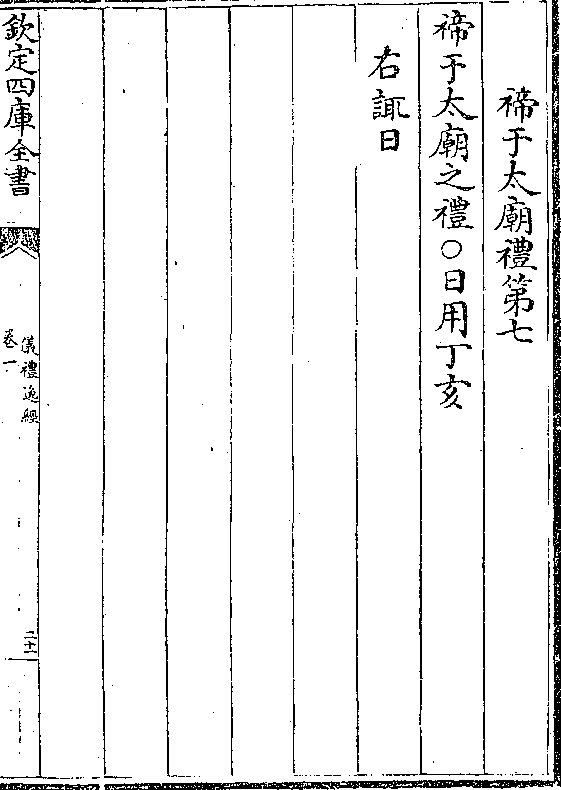 禘于太廟禮第七
禘于太廟之禮○日用丁亥
右諏日
欽定四庫全書
儀禮逸經
卷一
二十一